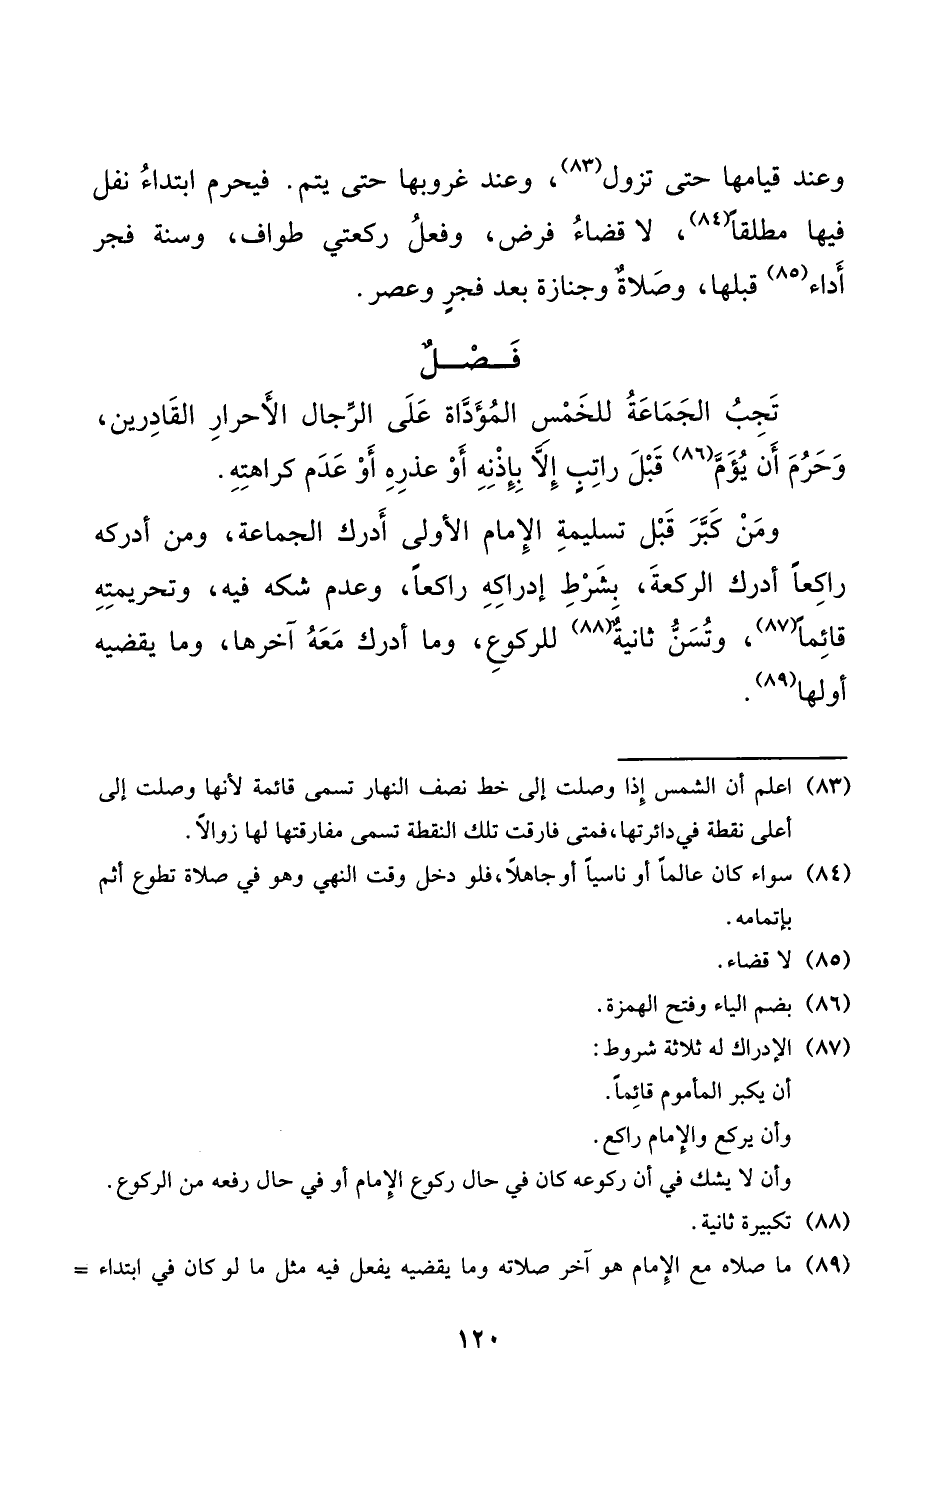 وعند قيامها حتى تزول(٨٣)، وعند غروبها حتى يتم. فيحرم ابتداءُ نفل
فيها مطلقاً(٨٤)، لا قضاءُ فرض، وفعلُ ركعتي طواف، وسنة فجر
أداء(٨٥) قبلها، وصَلاةٌ وجنازة بعد فجرٍ وعصر.
فَــصْــلٌ
تَجِبُ الجَمَاعَةُ للخَمْسِ المُؤَدَّاة عَلَى الرِّجال الأَحرارِ القَادِرين،
وَحَرُمَ أَن يُؤَمَّ(٨٦) قَبْلَ راتِبٍ إِلَّا بِإِذْنِهِ أَوْ عذرِهِ أَوْ عَدَم كراهتِهِ.
ومَنْ كَبَّرَ قَبْل تسليمةِ الإِمام الأولى أَدرك الجماعة، ومن أدركه
راكِعاً أدرك الركعةَ، بِشَرْطِ إدراكِهِ راكعاً، وعدم شكه فيه، وتحريمتِهِ
قائِماً(٨٧)، وتُسَنُّ ثانيةٌ(٨٨) للركوعِ، وما أدرك مَعَهُ آخرها، وما يقضيه
أولها(٨٩).
(٨٣) اعلم أن الشمس إِذا وصلت إلى خط نصف النهار تسمى قائمة لأنها وصلت إلى
أعلى نقطة في دائرتها، فمتى فارقت تلك النقطة تسمى مفارقتها لها زوالاً.
(٨٤) سواء كان عالماً أو ناسياً أو جاهلاً، فلو دخل وقت النهي وهو في صلاة تطوع أثم
بإتمامه.
(٨٥) لا قضاء.
(٨٦) بضم الياء وفتح الهمزة.
(٨٧) الإدراك له ثلاثة شروط:
أن يكبر المأموم قائِماً.
وأن يركع والإِمام راكع.
وأن لا يشك في أن ركوعه كان في حال ركوع الإِمام أو في حال رفعه من الركوع.
(٨٨) تكبيرة ثانية.
(٨٩) ما صلاه مع الإِمام هو آخر صلاته وما يقضيه يفعل فيه مثل ما لو كان في ابتداء =
١٢٠